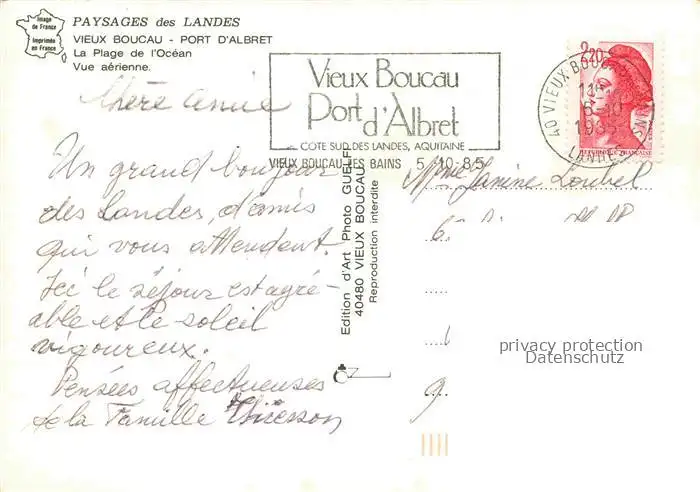 Image
de France
Imprimée
en France
PAYSAGES des LANDES
VIEUX BOUCAU - PORT D'ALBRET
La Plage de l'Océan
Vue aérienne.
Vieux Boucau
Port
d'Albret
COTE SUD DES LANDES, AQUITAINE
VIEUX BOUCAU LES BAINS 5.10.85
40 VIEUX BOUCAU LES BAINS
1985
LANDES
2,20
RÉPUBLIQUE FRANÇAISE
Chère amie
Un grand bonjour
des Landes, d'amis
qui vous attendent.
Ici le séjour est agré-
able et le soleil
vigoureux.
Pensées affectueuses
de la Famille
Edition d'Art Photo GUELF
40480 VIEUX BOUCAU
Reproduction interdite
Mme Janine Loubel
6
9
privacy protection
Datenschutz